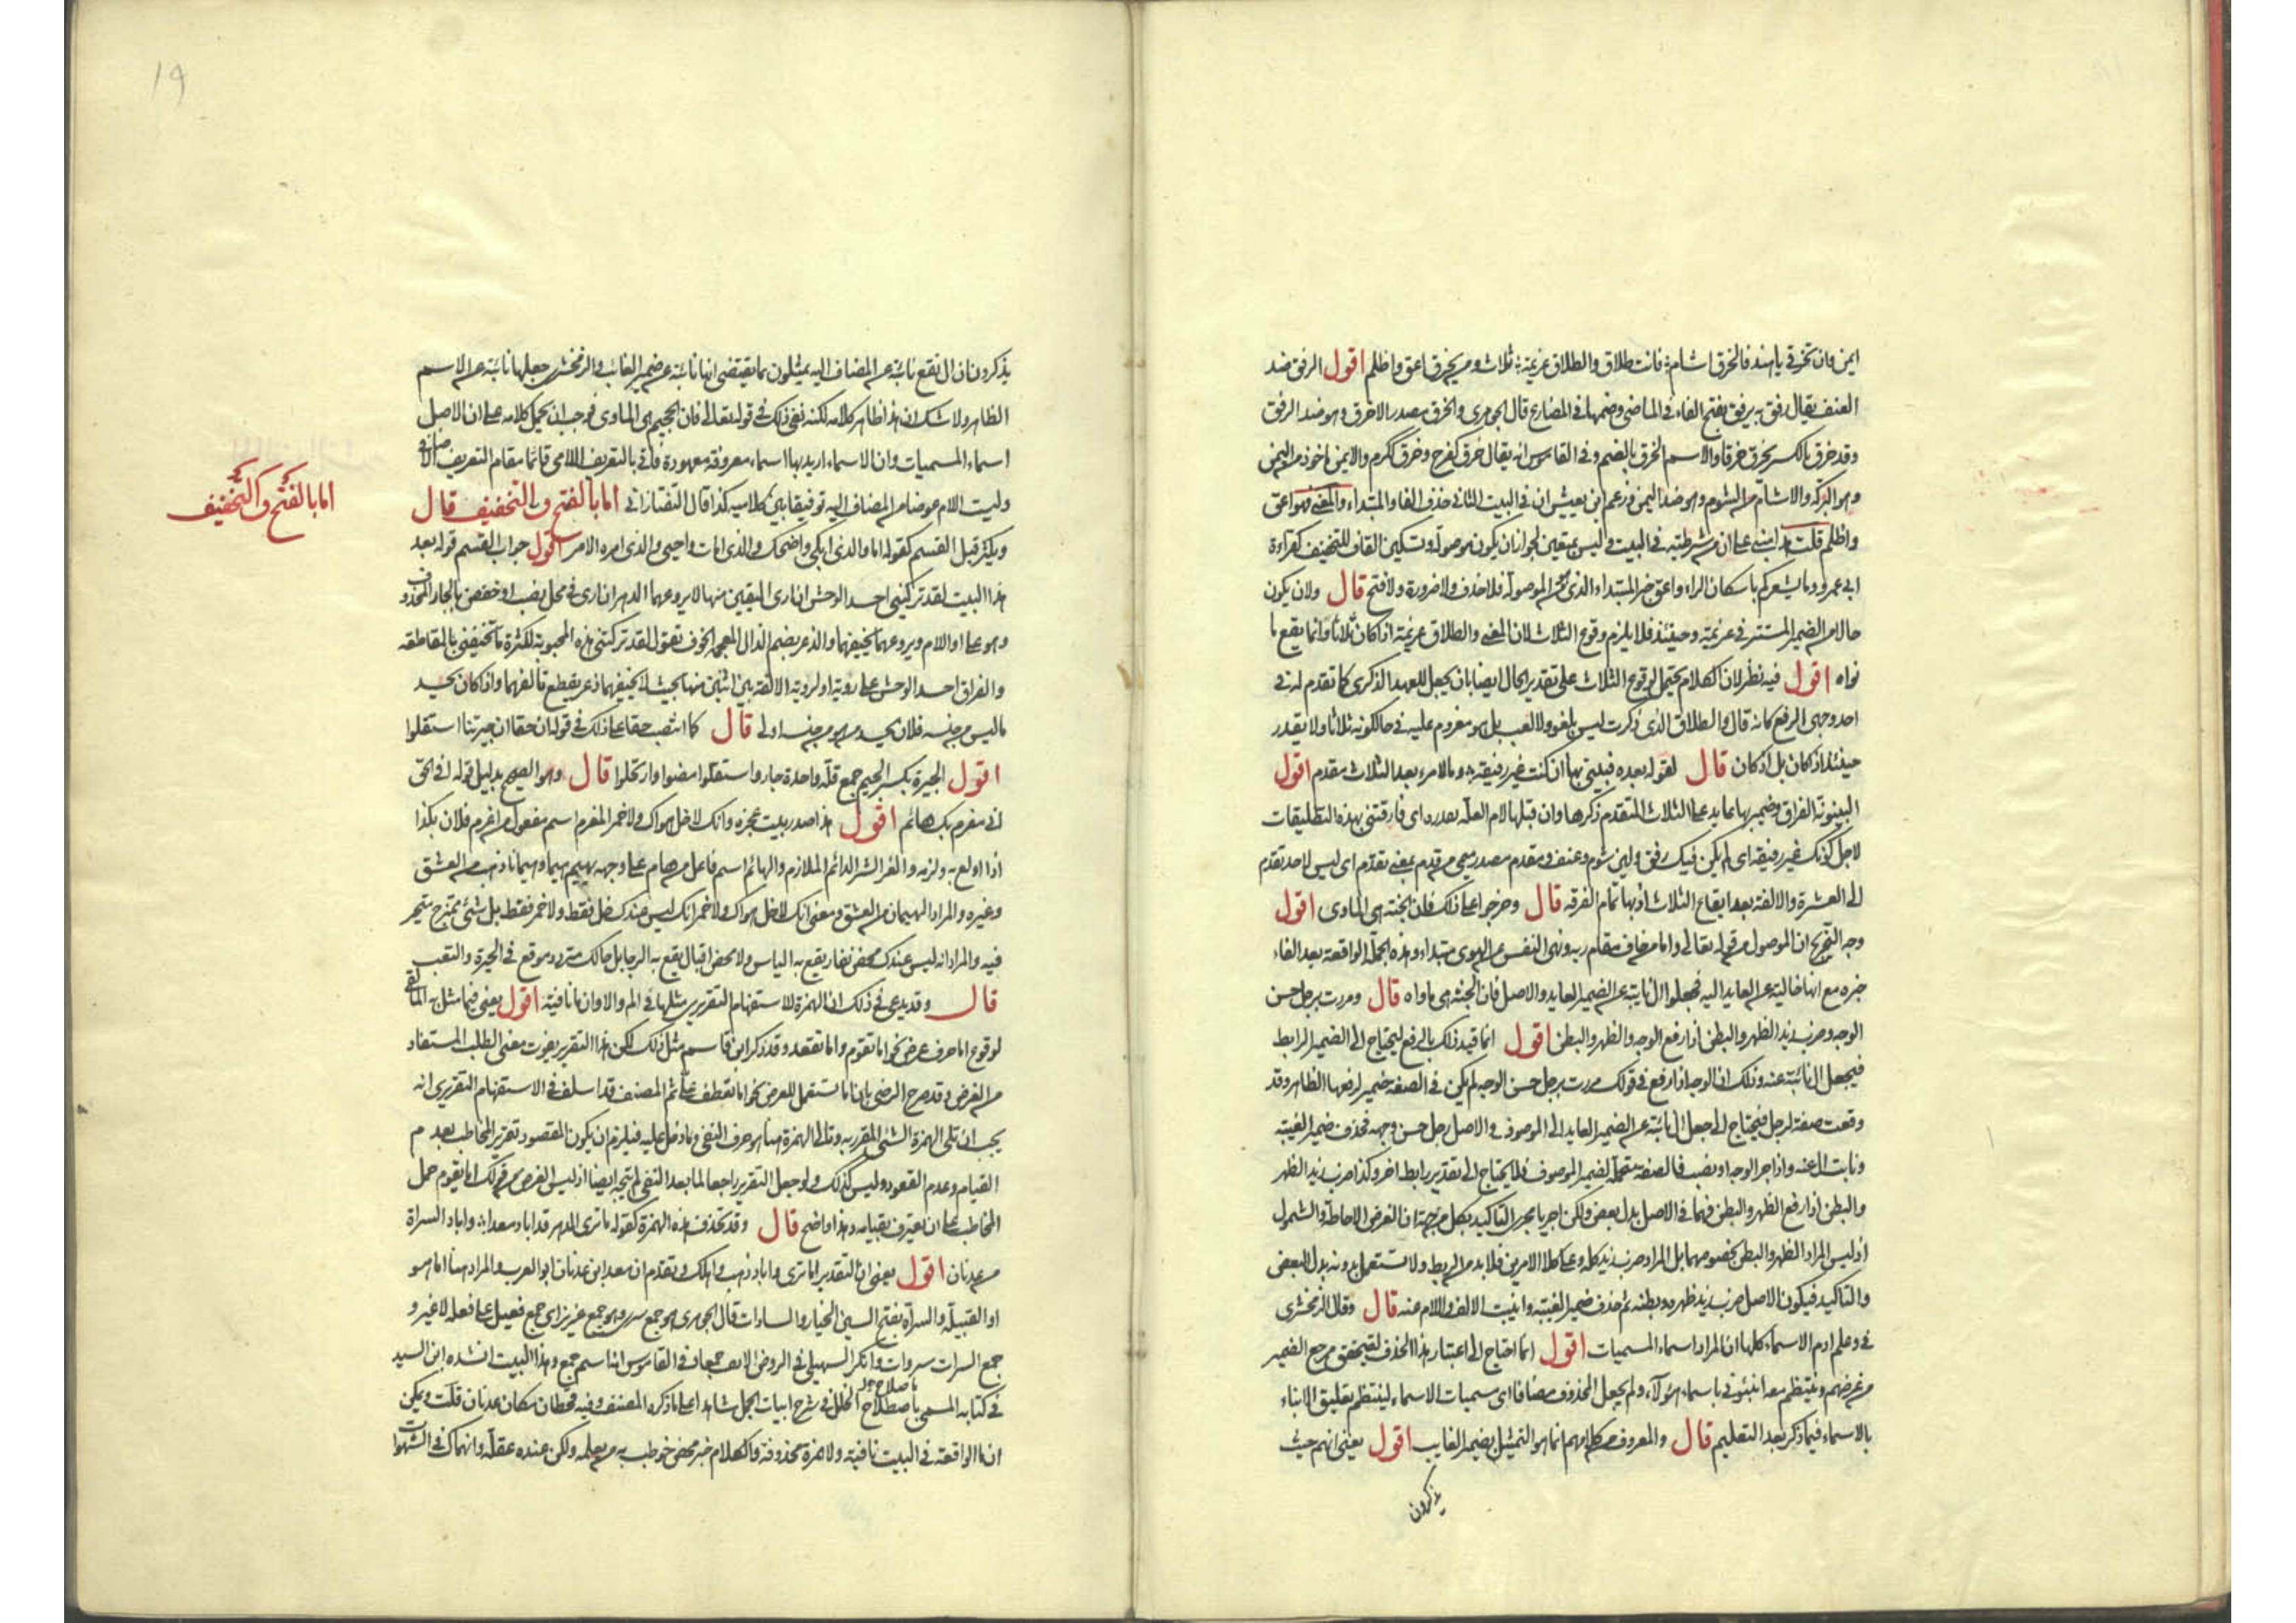 ايمن وان تخرقي يا هند فالخرق اشام ❊ فانت طلاق والطلاق عزيمة ❊ ثلاث ومن يخرق اعق واظلم اقول الرفق ضد
العنف يقال رفق به يرفق بفتح الفاء في الماضي وضمها في المضارع قال الجوهري والخرق مصدر الاخرق وهو ضد الرفق
وقد خرق بالكسر يخرق خرقا والاسم الخرق بالضم وفي القاموس انه يقال خرق كفرح وخرق ككرم والايمن ماخوذ من اليمن
وهو البركة والاشام من الشوم وهو ضد اليمن وزعم ابن يعيش ان في البيت الثاني حذف الفا والمبتداء والمعنى فهو اعق
واظلم قلت هذا مبني على ان من شرطية في البيت وليس بمتعين لجواز ان يكون موصولة وتسكين القاف للتخفيف كقراءة
ابي عمرو وما يشعركم باسكان الراء واعق خبر المبتداء الذي هو الموصولة فلا حذف ولا ضرورة ولا فتح قال ولان يكون
حالا من الضمير المستتر في عزيمة وحينئذ فلا يلزم وقوع الثلاث لان المعنى والطلاق عزيمة اذا كان ثلاثا فانما يقع ما
نواه اقول فيه نظر لان الكلام يحتمل لوقوع الثلاث على تقدير الحال ايضا بان يجعل للعهد الذكري كما تقدم له في
احد وجهي الرفع كانه قال والطلاق الذي ذكرت ليس بلغو ولا لعب بل هو معزوم عليه في حال كونه ثلاثا ولا يقدر
حينئذ اذا كان بل اذ كان قال لقوله بعده فبيني بها ان كنت غير رفيقة ❊ وما لامرء بعد الثلاث مقدم اقول
البينونة الفراق وضمير بها عايد على الثلاث المتقدم ذكرها وان قبلها لام العلة مقدره اي فارقتني بهذه التطليقات
لاجل كونك غير رفيقة اي لم يكن فيك رفق ولين شوم وعنف ومقدم مصدر ميمي من قدم بمعنى تقدم اي ليس لاحد تقدم
الى العشرة والالفة بعد ايقاع الثلاث اذ بها تمام الفرقه قال وخرجوا على ذلك فان الجنة هي الماوى اقول
وجه التخريج ان الموصول من قوله تعالى واما من خاف مقام ربه ونهى النفس عن الهوى مبتداء وهذه الجملة الواقعة بعد الفاء
خبره مع انها خالية عن العايد اليه فجعلوا ال نايبة عن الضمير العايد والاصل فان الجنة هي ماواه قال ومررت برجل حسن
الوجه وضرب زيد الظهر والبطن اذا رفع الوجه والظهر والبطن اقول انما قيد ذلك بالرفع ليحتاج الى الضمير الرابط
فيجعل ال نائبة عنه وذلك ان الوجه اذا رفع في قولك مررت برجل حسن الوجه لم يكن في الصفة ضمير لرفعها الظاهر وقد
وقعت صفة لرجل فيحتاج الى جعل ال نائبة عن الضمير العايد الى الموصوف والاصل رجل حسن وجهه فحذف ضمير الغيبة
ونابت ال عنه واذا جر الوجه او نصب فالصفة متحملة لضمير الموصوف فلا يحتاج الى تقدير رابط اخر وكذا ضرب زيد الظهر
والبطن اذا رفع الظهر والبطن فهما في الاصل بدل بعض ولكن اجريا مجرى التاكيد بكل من جهة ان الغرض الاحاطة والشمول
اذ ليس المراد الظهر والبطن بخصوصهما بل المراد ضرب زيد كله وعلى كلا الامرين فلا بد من الربط ولا تستعمل بدونه بدل البعض
والتاكيد فيكون الاصل ضرب زيد ظهره وبطنه ثم حذف ضمير الغيبة وانيبت الالف واللام عنه قال وقال الزمخشرى
في وعلم ادم الاسماء كلها ان المراد اسماء المسميات اقول انما احتاج الى اعتبار هذا الحذف ليتحقق مرجع الضمير
من عرضهم وينتظم معه انبئوني باسماء هؤلاء ولم يجعل المحذوف مضافا اي مسميات الاسماء لينتظم تعليق الانباء
بالاسماء فيما ذكر بعد التعليم قال والمعروف من كلامهم انما هو التمثيل بضمير الغايب اقول يعني انهم حيث
يذكرون
19
يذكرون ان ال تقع نائبة عن المضاف اليه يمثلون بما يقتضي انها نائبة عن ضمير الغائب والزمخشري جعلها نائبة عن الاسم
الظاهر ولا شك ان هذا ظاهر كلامه لكنه نفى ذلك في قوله تعالى فان الجحيم هي الماوى فوجب ان يحمل كلامه على ان الاصل
اسماء المسميات وان الاسماء اريد بها اسماء معروفة معهودة فاتى بالتعريف اللامى قائما مقام التعريف الاضافى
وليت اللام عوضا من المضاف اليه توفيقا بين كلاميه كذا قال التفتازاني اما بالفتح والتخفيف قال
ويكثر قبل القسم كقوله اما والذي ابكى واضحك والذي امات واحيى والذي امره الامر اقول جواب القسم قوله بعد
هذا البيت لقد تركتني احسد الوحش ان ارى اليفين منها لا يروعهما الدهر ان ارى في محل نصب او خفض بالجار المحذوف
وهو على او اللام ويروعهما يخيفهما والذعر بضم الذال المعجمة الخوف تقول لقد تركتني هذه المحبوبة لكثرة ما تخيفني بالمقاطعه
والفراق احسد الوحش على روية او لروية الالفة بين اثنين منها بحيث لا يخيفهما ذعر يقطع تالفهما واذا كان يحسد
ما ليس من جنسه فلان يحسد من هو من جنسه اولى قال كما انتصب حقا على ذلك في قوله احقا ان جيرتنا استقلوا
اقول الجيرة بكسر الجيم جمع قلة واحدة جار واستقلوا مضوا وارتحلوا قال وهو الصحيح بدليل قوله افي الحق
اني مغرم بك هائم اقول هذا صدر بيت عجزه وانك لا خل هواك ولا خمر المغرم اسم مفعول من اغرم فلان بكذا
اذا اولع به ولزمه والغرام الشر الدائم الملازم والهائم اسم فاعل من هام على وجهه يهيم هيما وهيمانا ذهب من العشق
وغيره والمراد الهيمان من العشق ومعنى انك لا خل هواك ولا خمر انك ليس عندك خل فقط ولا خمر فقط بل شئ ممتزج متحير
فيه والمراد انه ليس عندك محض نفار يقع به الياس ولا محض اقبال يقع به الرجا بل حالك متردد موقع في الحيرة والتعب
قال وقد يدعى في ذلك ان الهمزة للاستفهام التقريري مثلها في الم والا وان ما نافية اقول يعني فيما مثل به المالقي
لوقوع اما حرف عرض نحو اما تقوم واما تقعد وقد ذكر ابن قاسم مثل ذلك لكن هذا التقرير يفوت معنى الطلب المستفاد
من الغرض وقد صرح الرضي بان اما تستعمل للعرض نحو اما تعطف على ثم المصنف قد اسلف في الاستفهام التقريري انه
يجب ان تلي الهمزة الشئ المقرر به وتالي الهمزة هنا هو حرف النفي وما دخل عليه فيلزم ان يكون المقصود تقرير المخاطب بعدم
القيام وعدم القعود وليس كذلك ولو جعل التقرير راجعا لما بعد النفي لم يتجه ايضا اذ ليس الغرض من قولك اما يقوم حمل
المخاطب على ان يعترف بقيامه وهذا واضح قال وقد تحذف هذه الهمزة كقوله ما ترى الدهر قد اباد معدا ❊ واباد السراة
من عدنان اقول يعني ان التقدير اما ترى واباد ذهب واهلك وتقدم ان معد ابن عدنان ابو العرب والمراد هنا اما هو
او القبيلة والسراة بفتح السين الخيار والسادات قال الجوهري هو جمع سري وهو جمع عزيز اي جمع فعيل على فعلة لا غير و
جمع السرات سروات وانكر السهيلي في الروض الانف جمعا وفي القاموس انه اسم جمع وهذا البيت انشده ابن السيد
في كتابه المسمى باصطلاح الخلل في شرح ابيات الجمل شاهدا على ما ذكره المصنف وفيه قحطان مكان عدنان قلت ويمكن
ان ما الواقعة في البيت نافية ولا همزة محذوفة والكلام خبر محض خوطب به من يعلمه ولكن عنده غفلة وانهماك في الشهوات
اما بالفتح والتخفيف